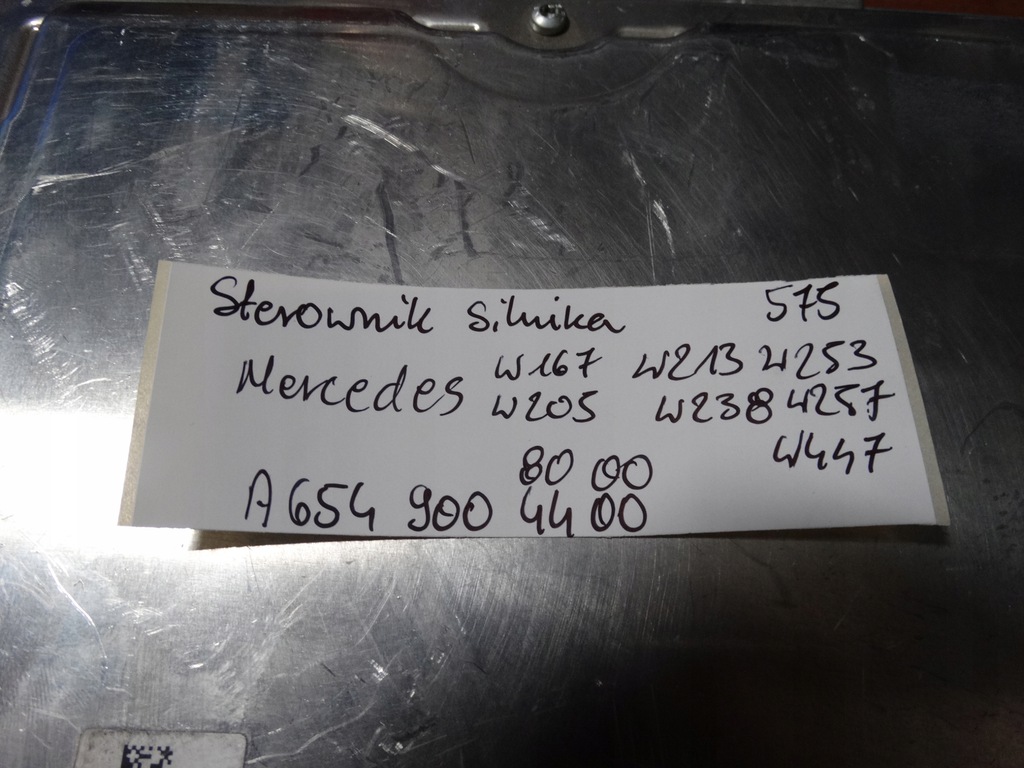 Sterownik Silnika 575
Mercedes W167 W213 W253
W205 W238 W257
W447
80 00
A 654 900 44 00